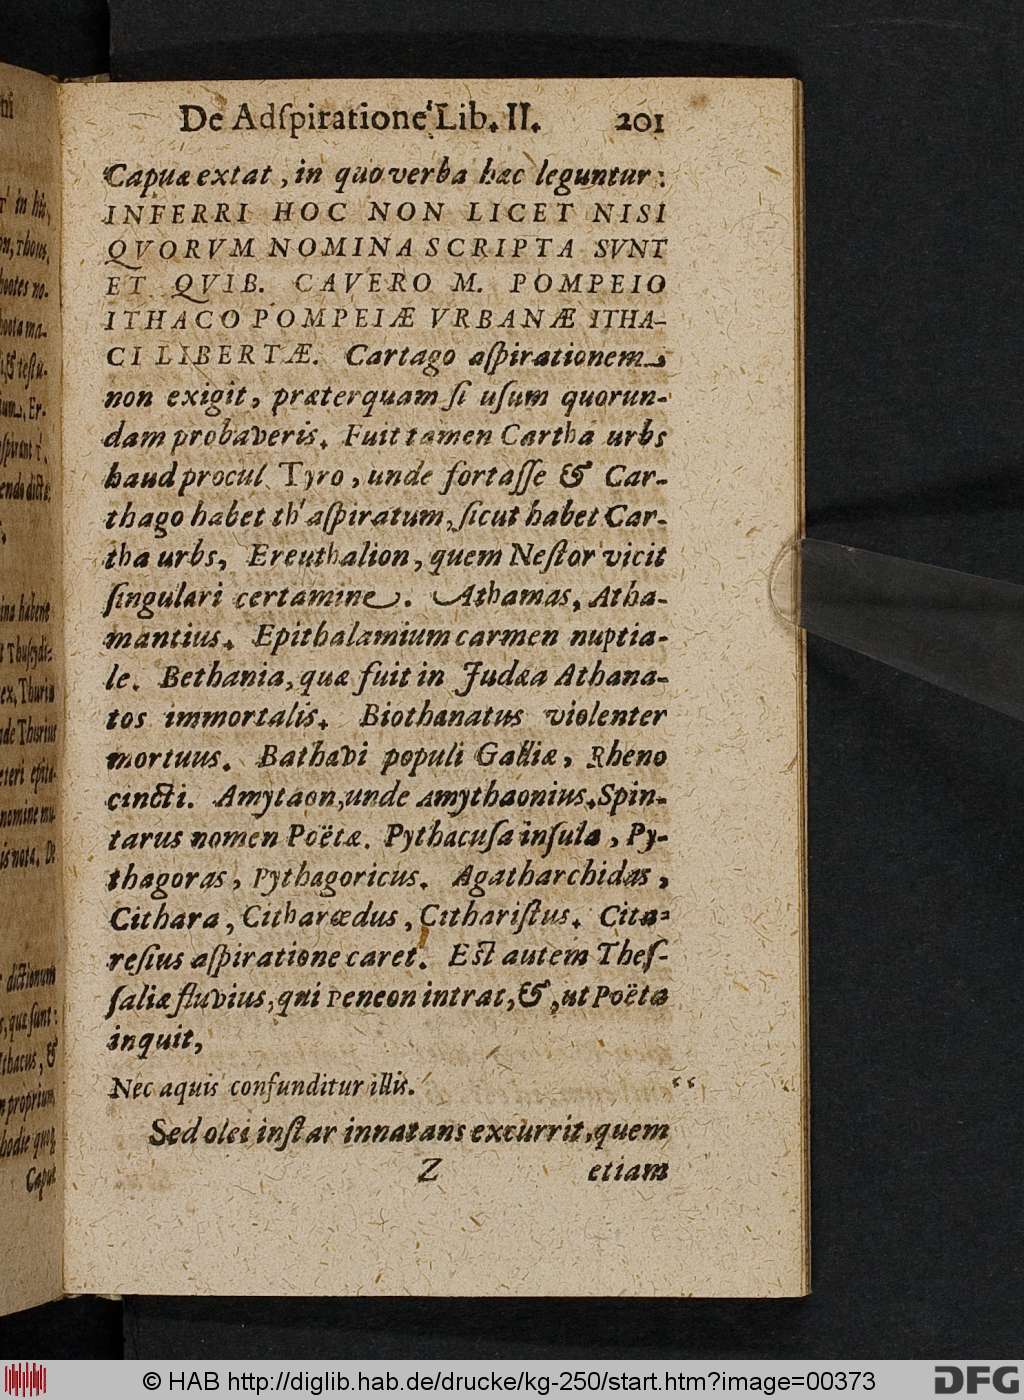 De Adſpiratione Lib. II. 201
Capuæ extat, in quo verba hæc leguntur:
INFERRI HOC NON LICET NISI
QVORVM NOMINA SCRIPTA SVNT
ET QVIB. CAVERO M. POMPEIO
ITHACO POMPEIÆ VRBANÆ ITHA-
CI LIBERTÆ. Cartago aſpirationem
non exigit, præterquam ſi uſum quorun-
dam probaveris. Fuit tamen Cartha urbs
haud procul Tyro, unde fortaſſe & Car-
thago habet th aſpiratum, ſicut habet Car-
tha urbs, Ereuthalion, quem Neſtor vicit
ſingulari certamine. Athamas, Atha-
mantius. Epithalamium carmen nuptia-
le. Bethania, quæ fuit in Judæa Athana-
tos immortalis. Biothanatus violenter
mortuus. Bathavi populi Galliæ, Rheno
cincti. Amytaon, unde Amythaonius. Spin-
tarus nomen Poëtæ. Pythacuſa inſula, Py-
thagoras, Pythagoricus. Agatharchidas,
Cithara, Citharœdus, Cithariſtus. Cita-
reſius aſpiratione caret. Eſt autem Theſ-
ſaliæ fluvius, qui Peneon intrat, &, ut Poëta
inquit,
Nec aquis confunditur illis.
Sed olei inſtar innatans excurrit, quem
Z etiam
Caput
© HAB http://diglib.hab.de/drucke/kg-250/start.htm?image=00373
DFG